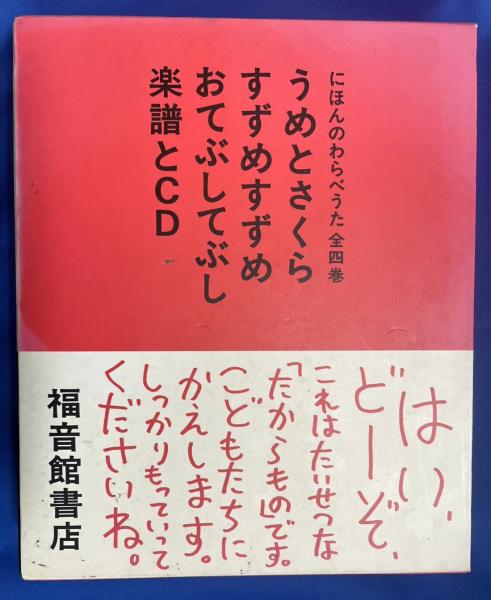 にほんのわらべうた 全四巻
うめとさくら
すずめすずめ
おてぶしてぶし
楽譜とCD
はい、
どーぞ、
これはたいせつな
「たからもの」です。
こどもたちに
かえします。
しっかりもっていって
くださいね。
福音館書店